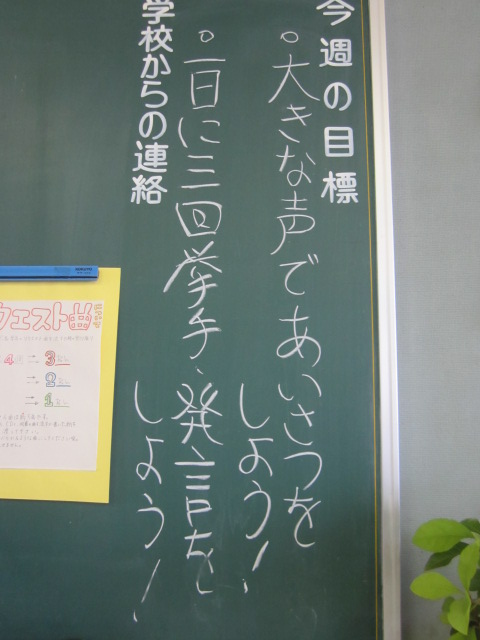 今週の目標
。大きな声であいさつを
しよう!
。一日に三回挙手、発言を
しよう!
学校からの連絡
ウエスト曲
4 → 3
→ 2
→ 1